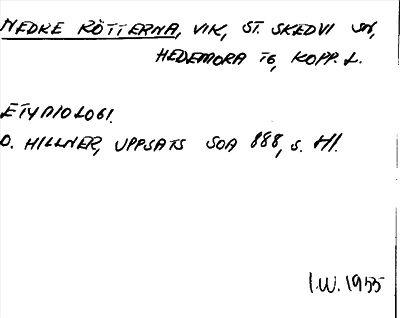 NEDRE RÖTTERNA, VIK, ST. SKEDVI SN,
HEDEMORA TG, KOPP. L.
ETYMOLOGI.
O. HILLNER, UPPSATS SOA 888, S. 41.
I.W. 1955